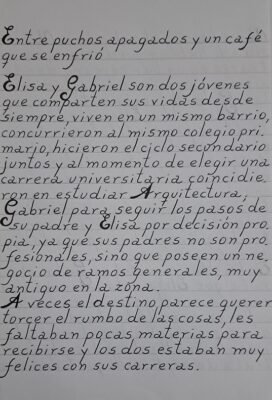 Entre puchos apagados y un café
que se enfrió
Elisa y Gabriel son dos jóvenes
que comparten sus vidas desde
siempre, viven en un mismo barrio,
concurrieron al mismo colegio pri-
mario, hicieron el ciclo secundario
juntos y al momento de elegir una
carrera universitaria coincidie-
ron en estudiar Arquitectura,
Gabriel para seguir los pasos de
su padre y Elisa por decisión pro-
pia, ya que sus padres no son pro-
fesionales, sino que poseen un ne-
gocio de ramos generales, muy
antiguo en la zona.
A veces el destino parece querer
torcer el rumbo de las cosas, les
faltaban pocas materias para
recibirse y los dos estaban muy
felices con sus carreras.